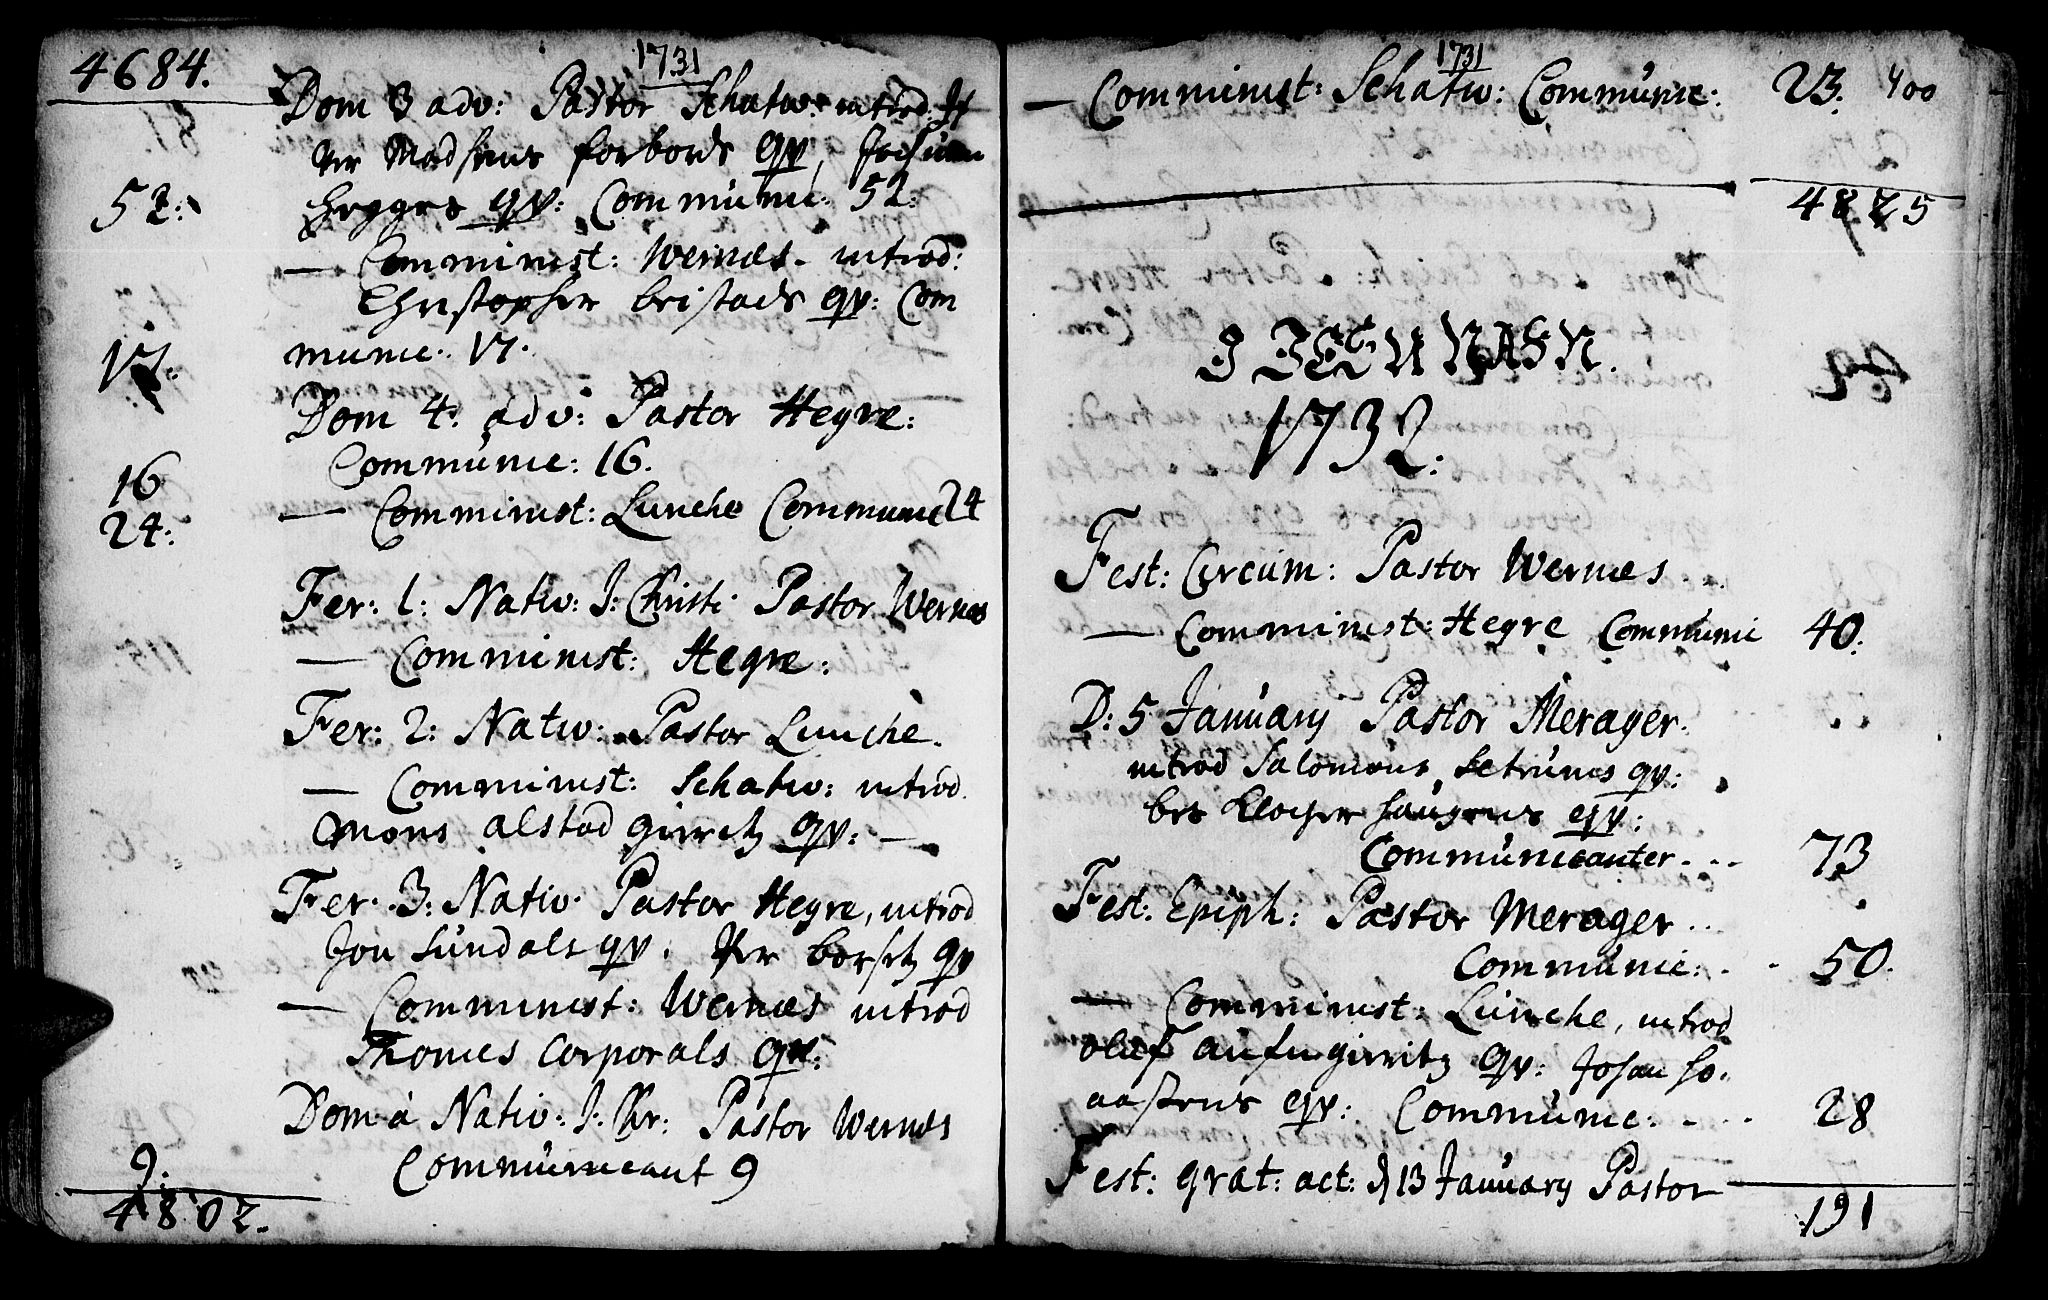 4684.
1731
Dom 3 adv: Pastor Schatw: introd:
Per Madsens forbords qv,
qv: Communic: 52:
52:
— Comminist: Wernæs. introd:
Christopher bristads qv: Com
munic: 17.
17.
Dom 4. adv: Pastor Hegre:
Communic: 16.
16
— Comminist: Lunche Communic 24
24:
Fer: 1: Nativ: J: Christi Pastor Wernæs
— Comminist: Hegre:
Fer: 2: Nativ: Pastor Lunche.
— Comminist: Schatw: introd.
Mons alstad girretz qv: —
Fer. 3: Nativ. Pastor Hegre, introd
Jon Sundals qv. Per borsetz qv
— Comminist: Wernæs introd
Thomes Corporals qv:
Dom à Nativ: J: Chr: Pastor Wernæs
Communicant 9
9.
4802.
1731
— Comminist: Schatw: Communic: 23. 400
4825
1732:
Fest: Circum: Pastor Wernæs..
— Comminist: Hegre Communic 40.
D: 5 January Pastor Merager.
introd Salomons qv:
qv:
Communicanter... 73
Fest: Epiph: Pastor Merager..
Communic: . . 50.
— Comminist: Lunche, introd
oluf girritz qv: Johan
qv: Communic: . . . 28
Fest: grat: act: d 13 January Pastor
191